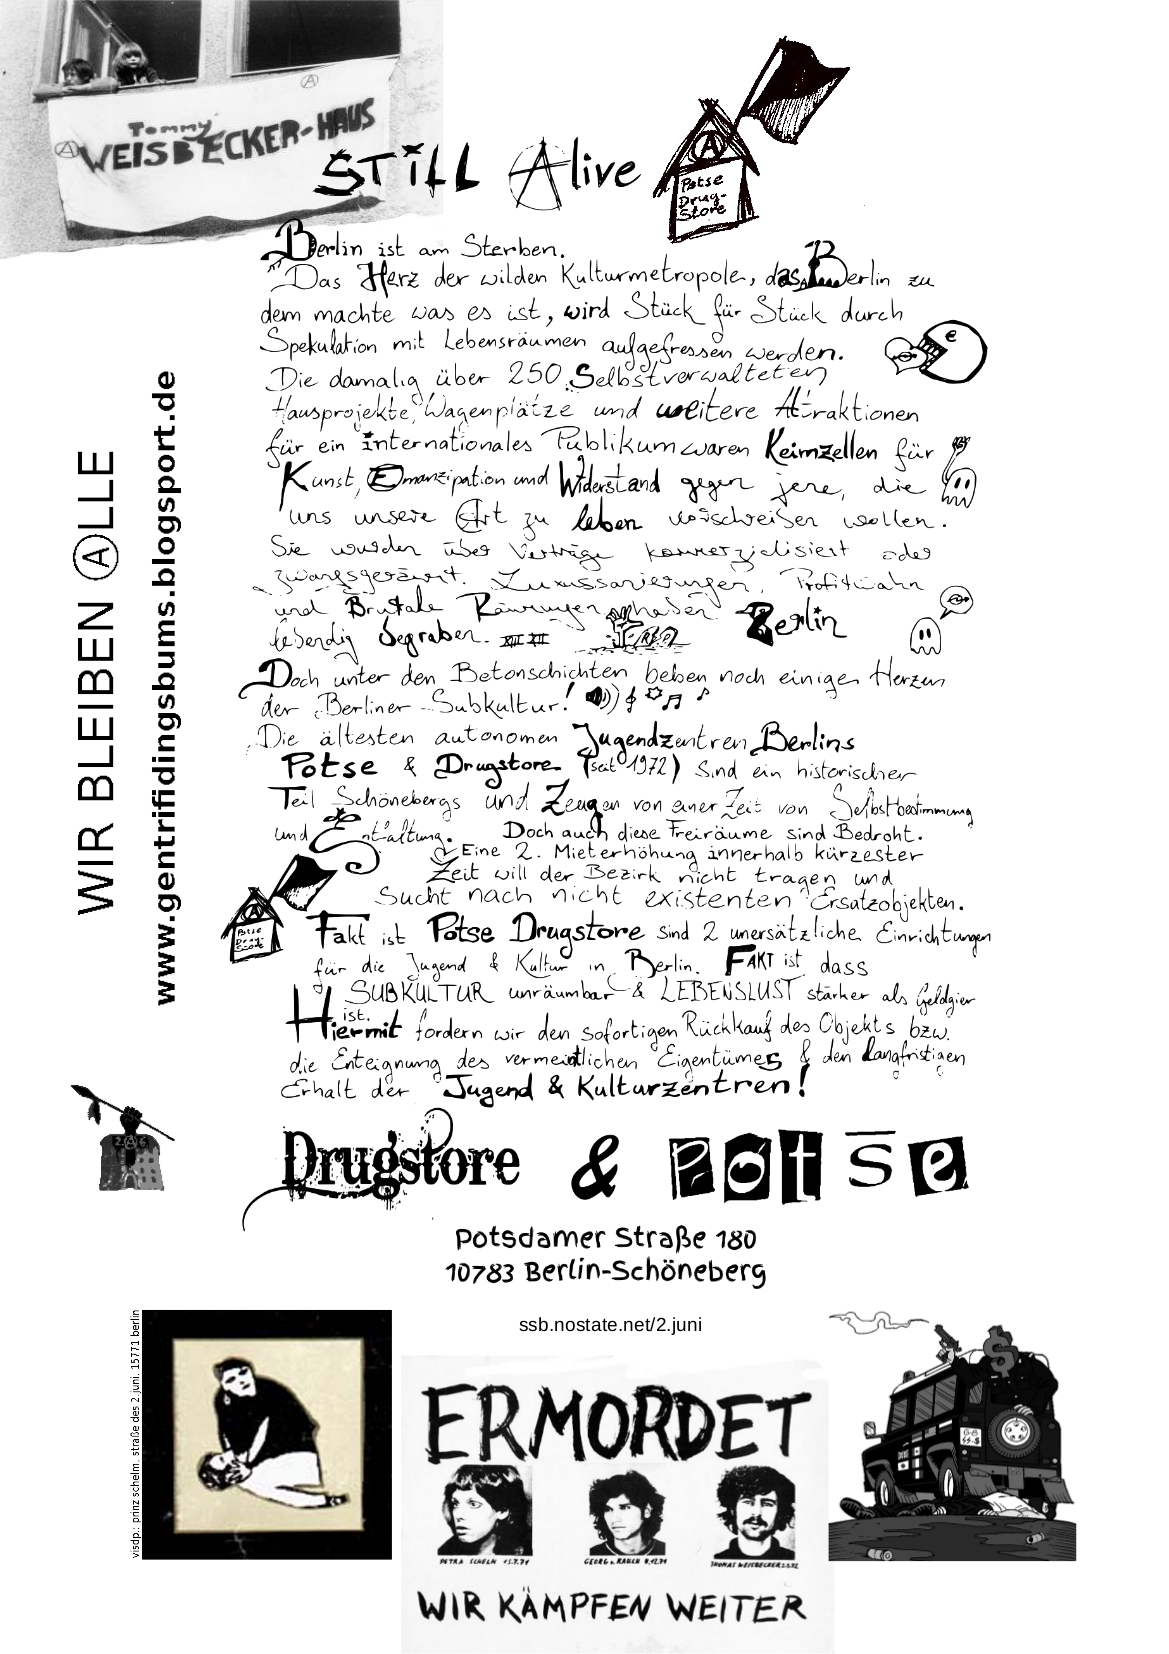 Tommy
WEISBECKER-HAUS
STiLL Alive
Potse
Drug-
Store
Berlin ist am Sterben.
Das Herz der wilden Kulturmetropole, das Berlin zu
dem machte was es ist, wird Stück für Stück durch
Spekulation mit Lebensräumen aufgefressen werden.
Die damalig über 250 Selbstverwalteten
Hausprojekte, Wagenplätze und weitere Attraktionen
für ein internationales Publikum waren Keimzellen für
Kunst, Emanzipation und Widerstand gegen jene, die
uns unsere Art zu leben vorschreiben wollen.
Sie wurden über Verträge kommerzialisiert oder
zwangsgeräumt. Luxussanierungen, Profitwahn
und Brutale Räumungen haben Berlin
lebendig begraben.
Doch unter den Betonschichten beben noch einige Herzen
der Berliner Subkultur!
Die ältesten autonomen Jugendzentren Berlins
Potse & Drugstore (seit 1972) sind ein historischer
Teil Schönebergs und Zeugen von einer Zeit von Selbstbestimmung
und Entfaltung. Doch auch diese Freiräume sind Bedroht.
Eine 2. Mieterhöhung innerhalb kürzester
Zeit will der Bezirk nicht tragen und
Sucht nach nicht existenten Ersatzobjekten.
Potse
Drug-
Store
Fakt ist Potse Drugstore sind 2 unersätzliche Einrichtungen
für die Jugend & Kultur in Berlin. FAKT ist dass
SUBKULTUR unräumbar & LEBENSLUST stärker als Geldgier
ist.
Hiermit fordern wir den sofortigen Rückkauf des Objekts bzw.
die Enteignung des vermeintlichen Eigentümes & den langfristigen
Erhalt der Jugend & Kulturzentren!
Drugstore & Potse
Potsdamer Straße 180
10783 Berlin-Schöneberg
ssb.nostate.net/2.juni
WIR BLEIBEN ALLE
www.gentrifidingsbums.blogsport.de
visdp.: prinz schelm. straße des 2.juni. 15771 berlin
ERMORDET
PETRA SCHELM 15.7.71
GEORG v. RAUCH 4.12.71
THOMAS WEISBECKER 2.3.72
WIR KÄMPFEN WEITER